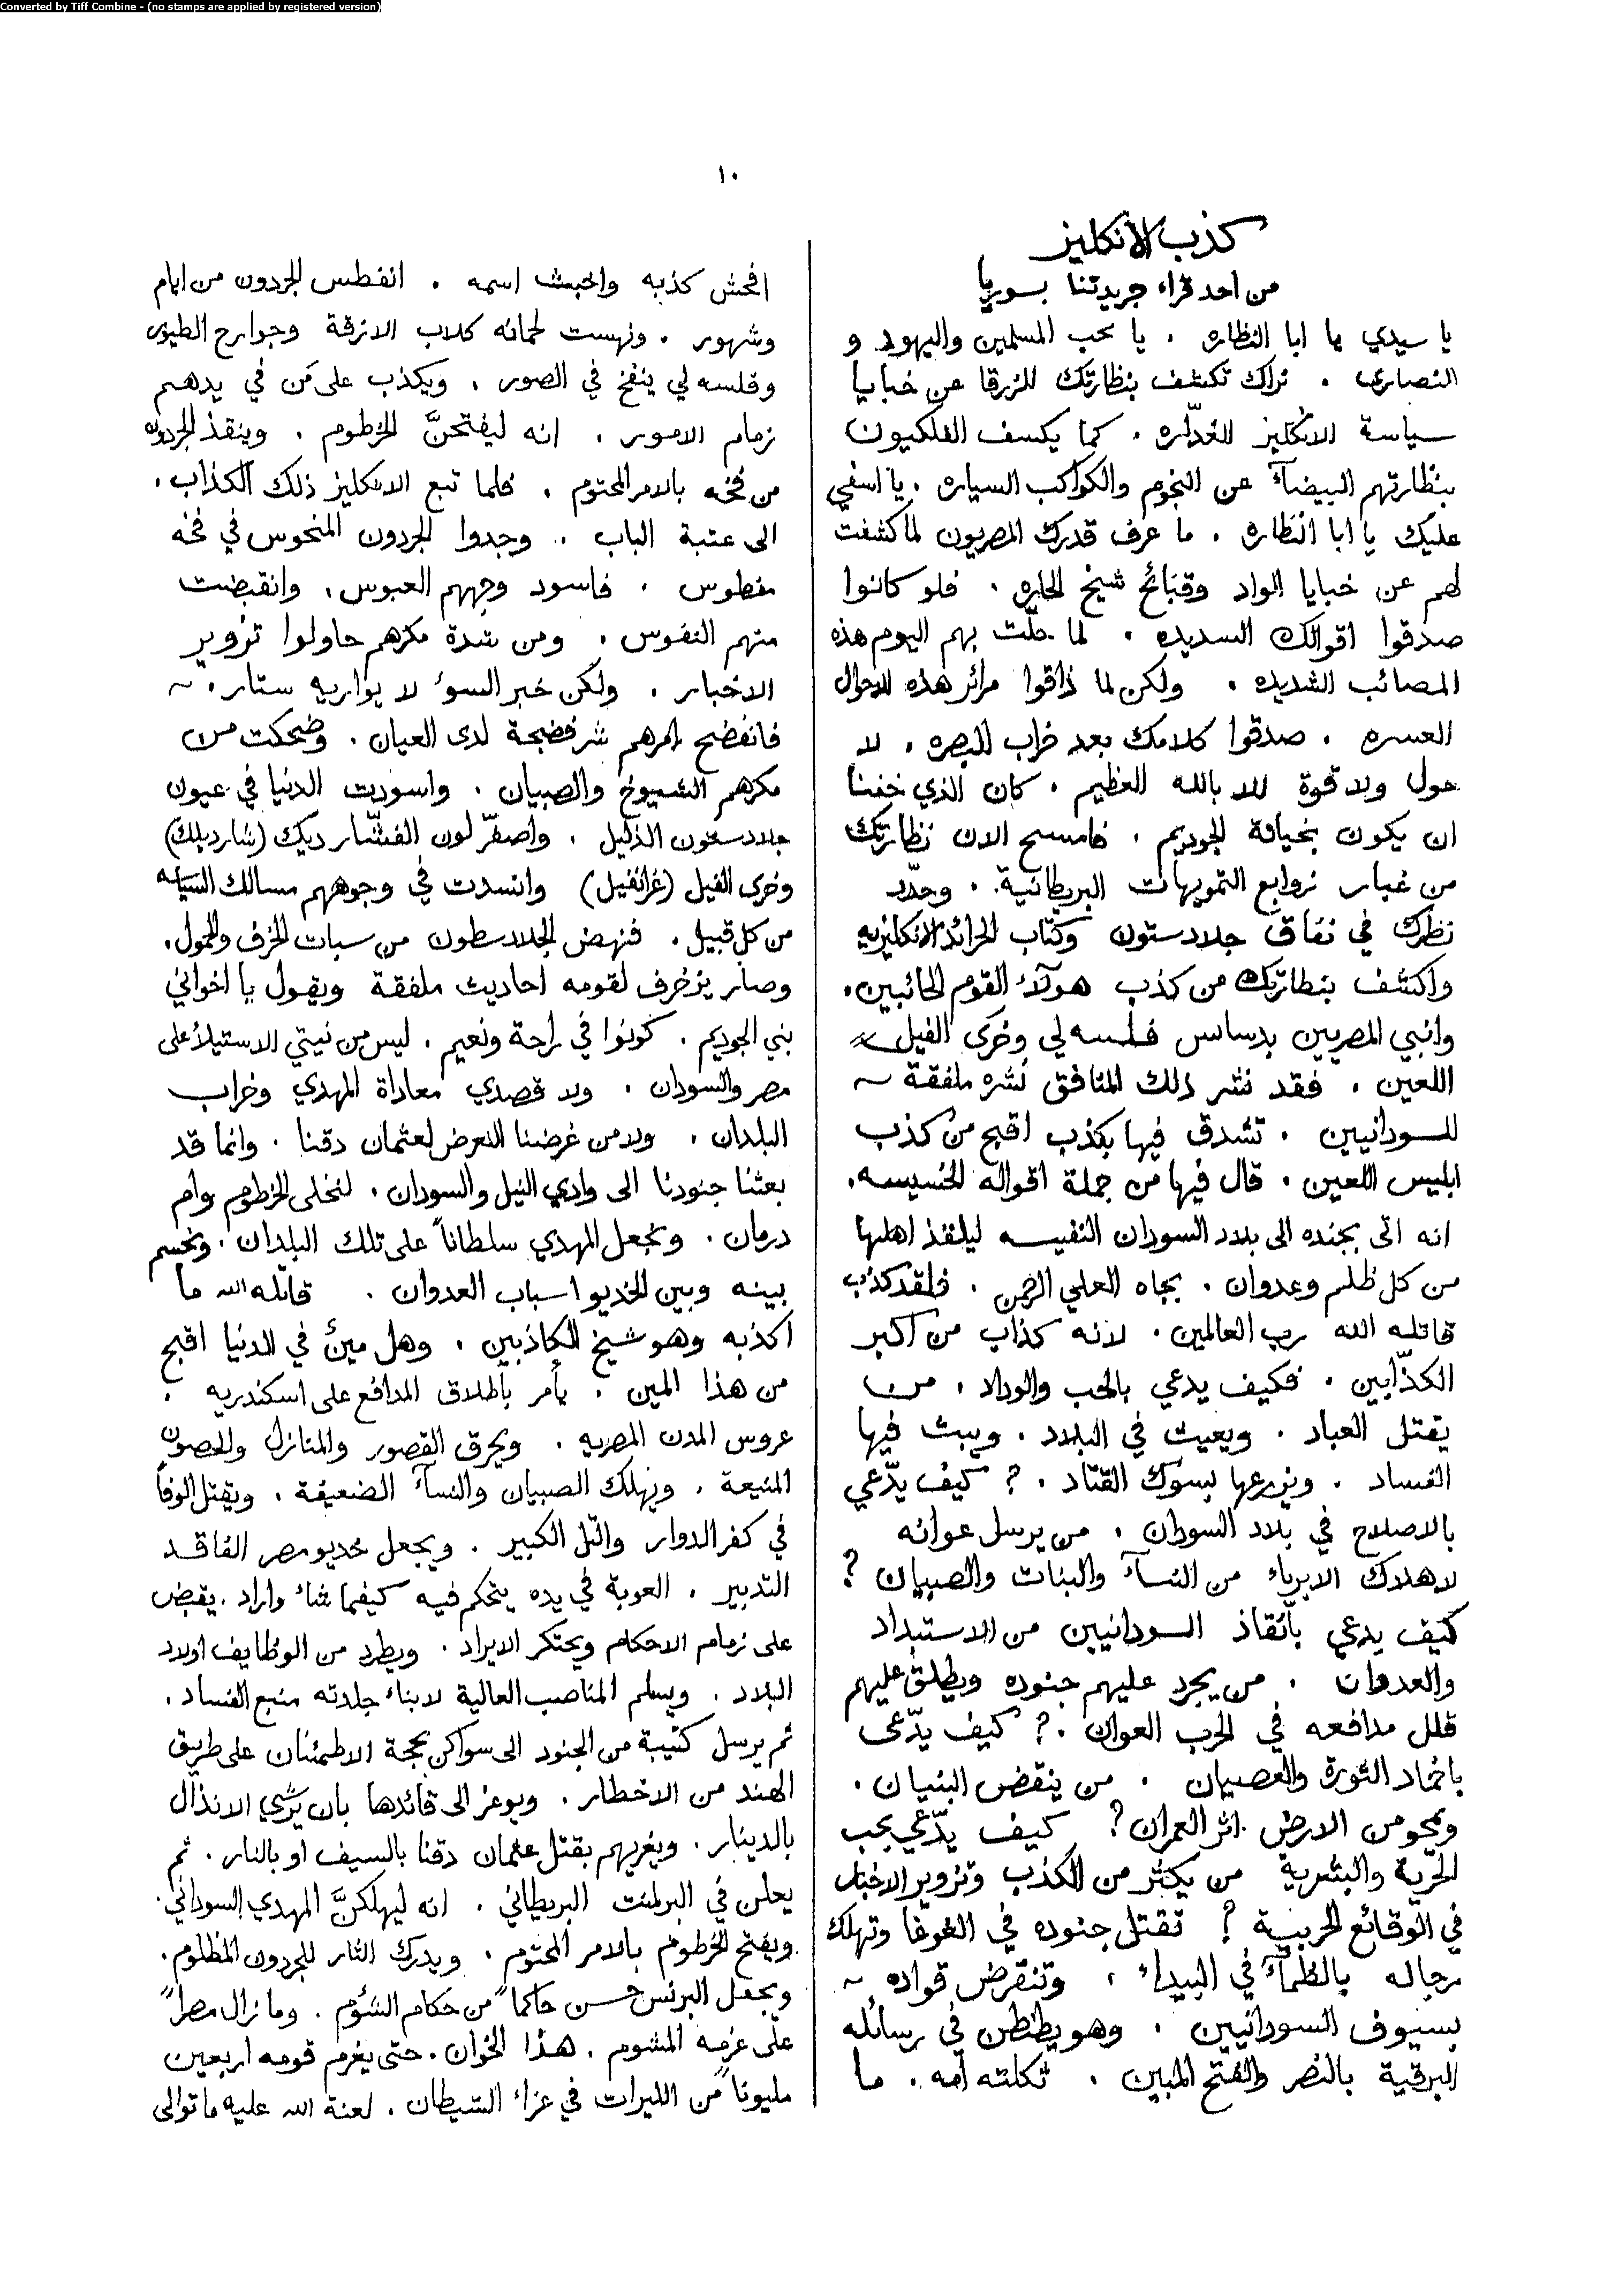 Converted by Tiff Combine - (no stamps are applied by registered version)
١٠
كذب الانكليز
من احد قراء جريدتنا بسوريا
يا سيدي يا ابا النظاره . يا محب المسلمين واليهود و
النصارى . نراك تكشف بنظارتك الزرقا عن خبايا
سياسة الانكليز الغدّاره . كما يكسف الفلكيون
بنظارتهم البيضآء عن النجوم والكواكب السياره . يا اسفي
عليك يا ابا النظاره . ما عرف قدرك المصريون لما كشفت
لهم عن خبايا الواد وقبائح شيخ الحاره . فلو كانوا
صدقوا اقوالك السديده . لما حلّت بهم اليوم هذه
المصائب الشديده . ولكن لما ذاقوا مرائر هذه الاحوال
العسره . صدقوا كلامك بعد خراب البصره . لا
حول ولا قوة الا بالله العظيم . كان الذي خفنا
ان يكون بخيانة الجوديم . فامسح الان نظارتك
من غبار زوابع التمويهات البريطانية . وحدّد
نظرك في نفاق جلادستون وكتّاب الجرائد الانكليزيه
واكشف بنظارتك من كذب هولآء القوم الخائبين .
وانبي المصريين بدسائس فلسه لي وخرى الفيل
اللعين . فقد نشر ذلك المنافق نشره ملفقة ~
للسودانيين . تشدق فيها بكذب اقبح من كذب
ابليس اللعين . قال فيها من جملة اقواله الخسيسه .
انه اتى بجنده الى بلاد السودان النفيسه لينقذ اهلها
من كل ظلم وعدوان . بجاه العلي الرحمن . فلقد كذب
قاتله الله رب العالمين . لانه كذاب من اكبر
الكذّابين . فكيف يدعي بالحب والوداد . من
يقتل العباد . ويعيث في البلاد . ويبث فيها
الفساد . ويزرعها بشوك القتاد . ؟ كيف يدّعي
بالاصلاح في بلاد السودان . من يرسل عوانه
لاهلاك الابرياء من النسآء والبنات والصبيان ؟
كيف يدعي بانقاذ السودانيين من الاستبداد
والعدوان . من يجرد عليهم جنوده ويطلق عليهم
قلل مدافعه في الحرب العوان . ؟ كيف يدّعى
باخماد الثورة والعصيان . من ينقض البنيان .
ويمحو من الارض اثر العمران ؟ كيف يدّعي بحب
الحرّية والبشرية من يكثر من الكذب وتزوير الاخبار
في الوقائع الحربية ؟ تقتل جنوده في الغوغا وتهلك
رجاله بالظمآء في البيداء . وتنقرض قواده ~
بسيوف السودانيين . وهو يطنطن في رسائله
البرقية بالنصر والفتح المبين . ثكلته امه . ما
افحش كذبه واخبث اسمه . انفطس الجردون من ايام
وشهور . ونهست لحمانه كلاب الازقة وجوارح الطيور
وفلسه لي ينفخ في الصور . ويكذب على من في يدهم
زمام الامور . انه ليفتحنَّ الخرطوم . وينقذ الجردون
من فخه بالامر المحتوم . فلما تبع الانكليز ذلك الكذاب .
الى عتبة الباب .. وجدوا الجردون المنحوس في فخه
مفطوس . فاسود وجههم العبوس . وانقبضت
منهم النفوس . ومن شدة مكرهم حاولوا تزوير
الاخبار . ولكن خبر السوء لا يواريه ستار . ~
فانفضح امرهم شر فضيحة لدى العيان . وضحكت من
مكرهم الشيوخ والصبيان . واسودت الدنيا في عيون
جلادستون الذليل . واصفرّ لون الفشّار ديك (شارديلك)
وخرى الفيل (غرانفيل) وانسدت في وجوههم مسالك السياسه
من كل قبيل . فنهض الجلادسطون من سبات الخرف والخمول .
وصار يزخرف لقومه احاديث ملفقة ويقول يا اخواني
بني الجوديم . كونوا في راحة ونعيم . ليس من نيتي الاستيلا على
مصر والسودان . ولا قصدي معاداة المهدي وخراب
البلدان . ولا من غرضنا التعرض لعثمان دقنا . وانما قد
بعثنا جنودنا الى وادي النيل والسودان . لنخلى الخرطوم وام
درمان . ونجعل المهدي سلطاناً على تلك البلدان . ونحسم
بينه وبين الخديو اسباب العدوان . قاتله الله ما
اكذبه وهو شيخ الكاذبين . وهل مينٌ في الدنيا اقبح
من هذا المين . يأمر بأطلاق المدافع على اسكندريه .
عروس المدن المصريه . ويحرق القصور والمنازل والحصون
المنيعة . ويهلك الصبيان والنسآء الضعيفة . ويقتل الوفاً
في كفر الدوار والتل الكبير . ويجعل خديو مصر الفاقد
التدبير . العوبة في يده يتحكم فيه كيفما شاء واراد . يقبض
على زمام الاحكام ويحتكر الايراد . ويطرد من الوظايف اولاد
البلاد . ويسلم المناصب العالية لابناء جلدته منبع الفساد .
ثم يرسل كتيبة من الجنود الى سواكن بحجة الاطمئنان على طريق
الهند من الاخطار . ويوعز الى قائدها بان يرشي الانذال
بالدينار . ويغريهم بقتل عثمان دقنا بالسيف او بالنار . ثم
يعلن في البرلمنت البريطاني . انه ليهلكنَّ المهدي السوداني .
ويفتح الخرطوم بالامر المحتوم . ويدرك الثار للجردون المظلوم .
ويجعل البرنس حسن حاكماً من حكام الشؤم . وما زال مصراً
على عزمه المشوم . هذا الخوان . حتى يغرم قومه اربعين
مليوناً من الليرات في عزاء الشيطان . لعنة الله عليه ما توالى